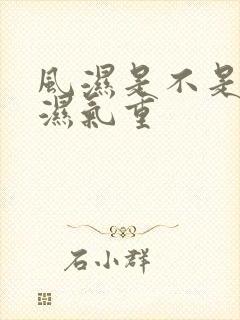 風濕是不是
濕氣重
石小群